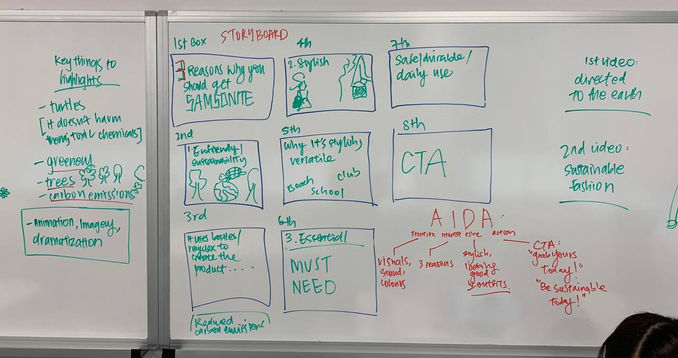 Key things to
highlights
- turtles
[it doesn't harm
toxic chemicals]
- greenery
- trees
- carbon emissions
- Animation, Imagery,
dramatization
STORYBOARD
1st Box
3 Reasons why you
should get
SAMSONITE
4th
2. Stylish
7th
Safe/durable/
daily use
2nd
1. Ecofriendly/
sustainability
5th
Why it's stylish,
versatile
Beach club
school
8th
CTA
3rd
It uses bottles/
recyclex to
create the
product.....
[Reduced
carbon emissions]
6th
3. Essential/
MUST
NEED
AIDA:
interest
action
visuals,
sound,
colours
3 reasons
stylish,
looking
good
outfits
CTA:
"grab yours
today!"
"Be sustainable
today!"
1st video:
directed
to the earth
2nd video:
sustainable
fashion